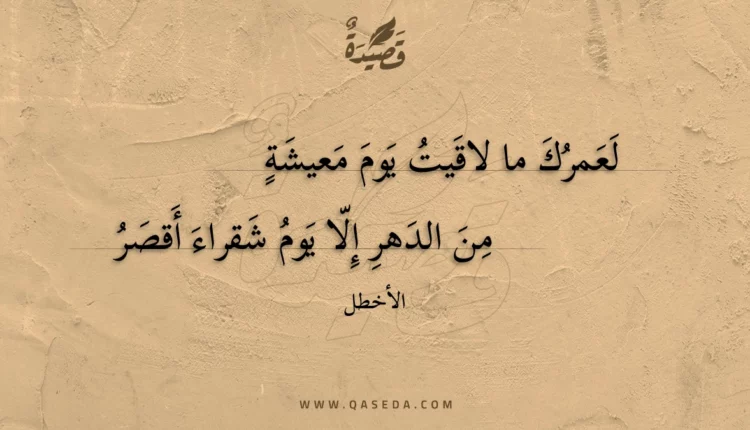 قَصِيدَةٌ
لَعَمرُكَ ما لاقَيتُ يَومَ مَعيشَةٍ
مِنَ الدَهرِ إِلّا يَومُ شَقراءَ أَقصَرُ
الأخطل
WWW.QASEDA.COM